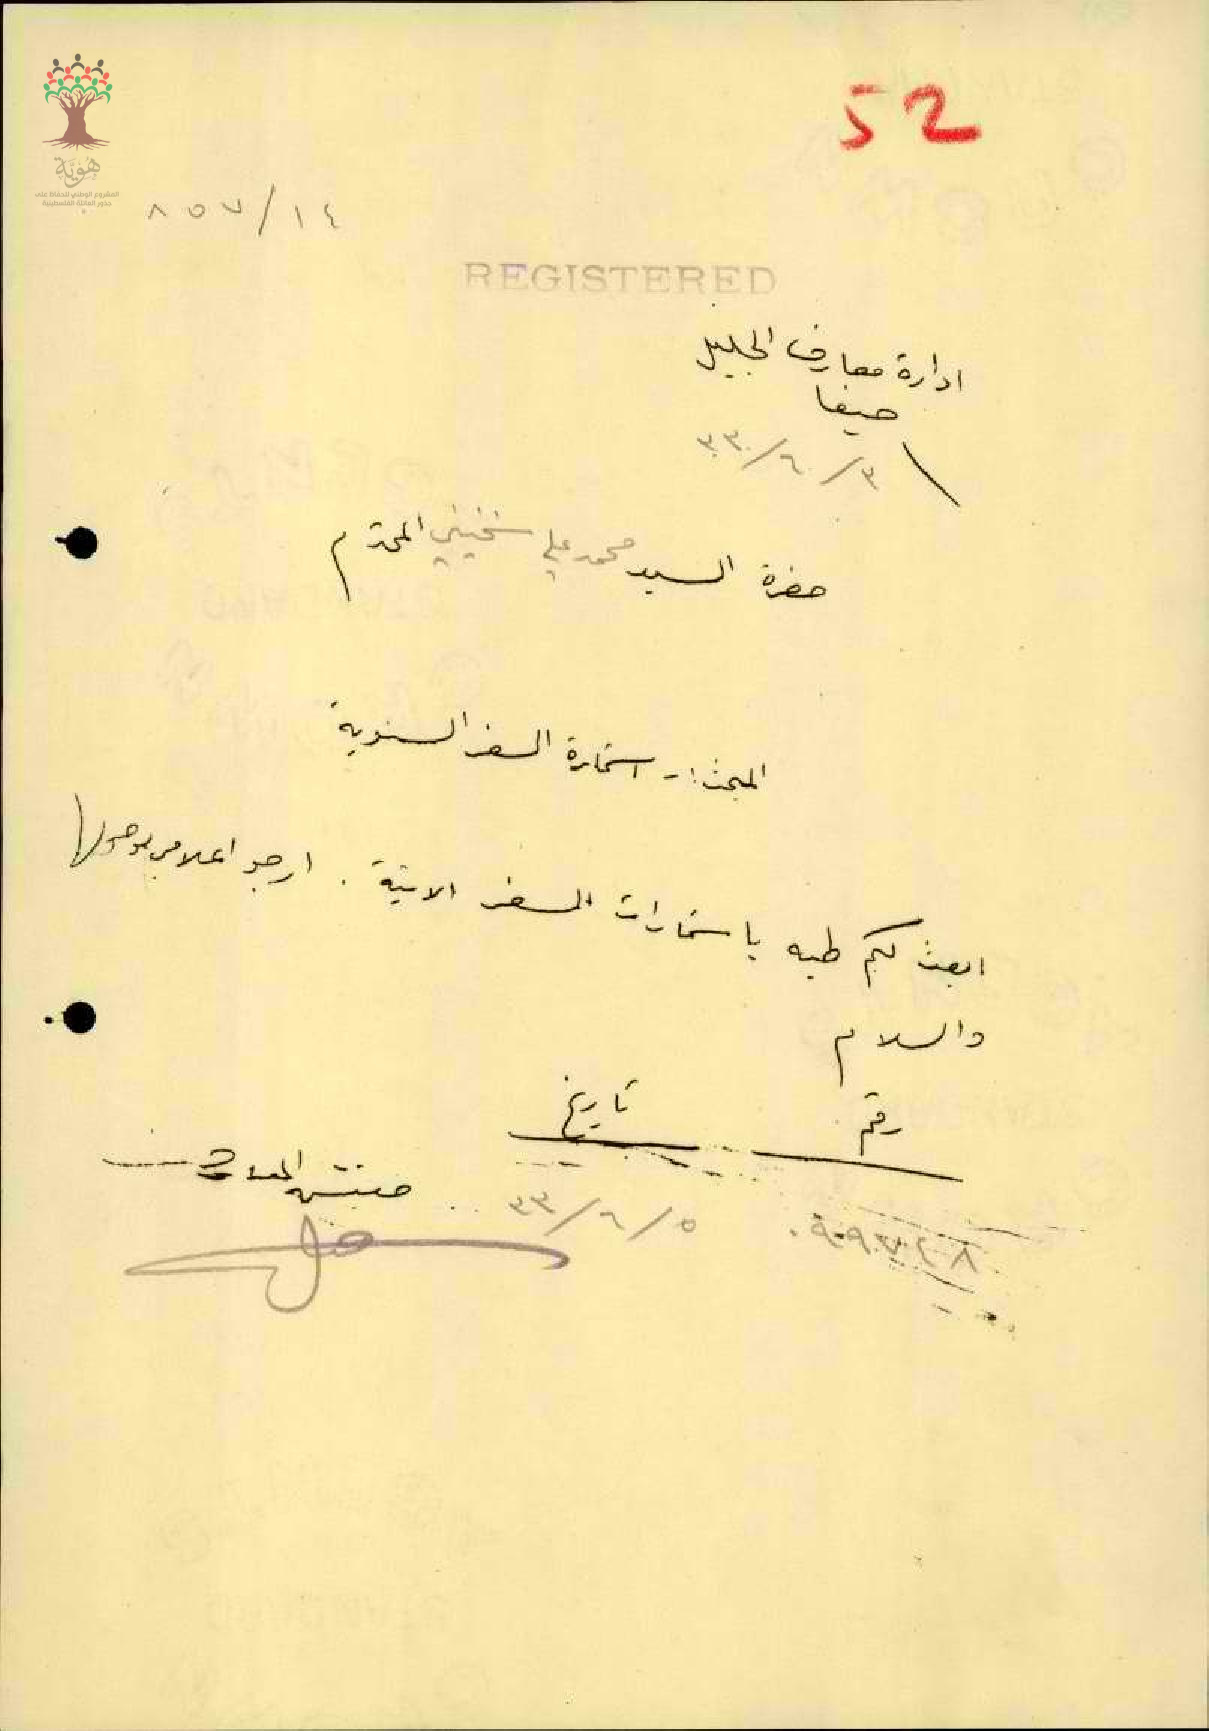 52
هُوِيَّة
المشروع الوطني للحفاظ على
جذور العائلة الفلسطينية
٨٥٧/١٤
REGISTERED
ادارة معارف الجليل
حيفا
٣/٦/٣٣
حضرة السيد محمد علي سخنيني المحترم
المبحث :- استمارة السفر السنوية
ابعث لكم طيه باستمارات السفر الاتية . ارجو اعلامي بوصولها
والسلام
رقم تاريخ
٠٩٩٧٤٨ ٥/٦/٣٣
مفتش المعارف